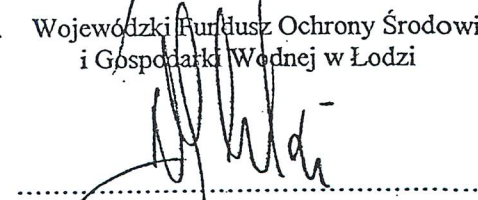 Wojewódzki Fundusz Ochrony Środowi
i Gospodarki Wodnej w Łodzi